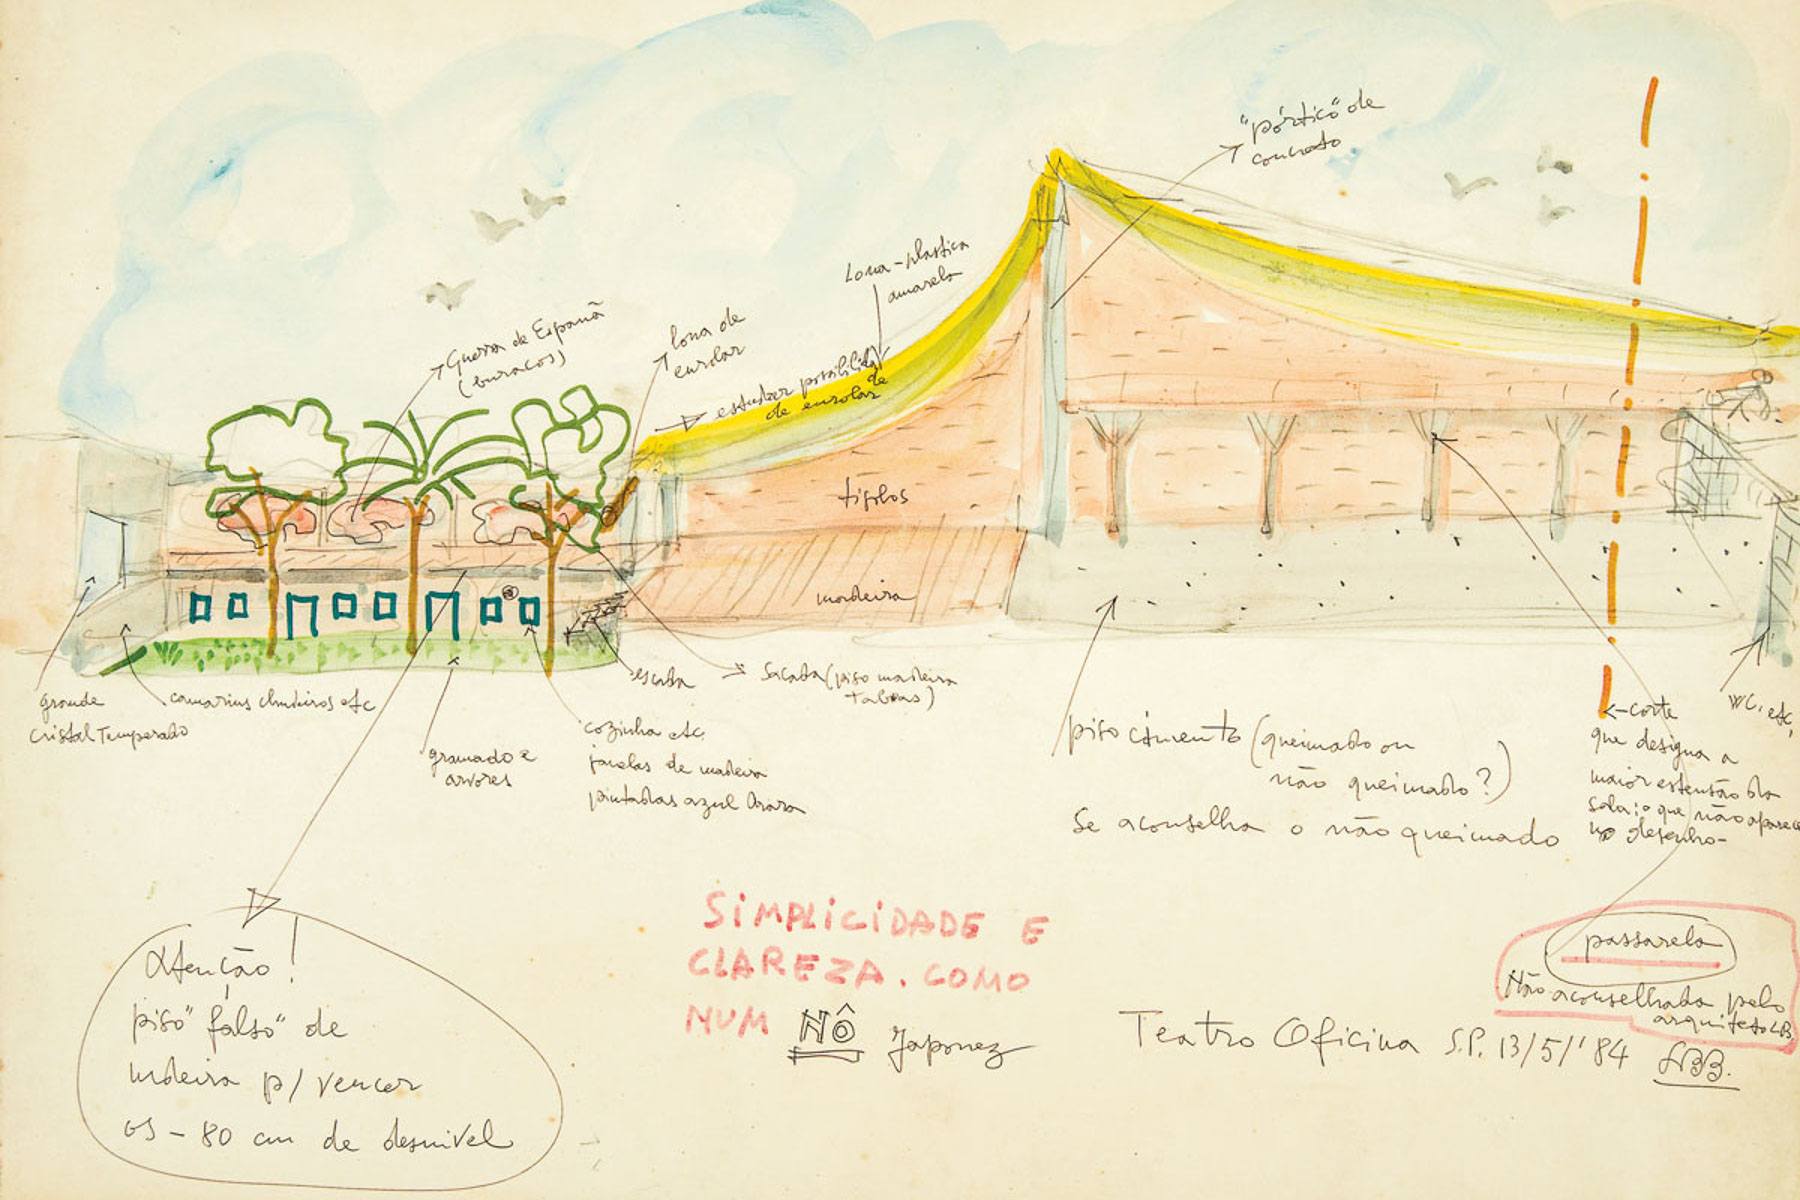 "pórtico" de
concreto
Lona-plastica
amarela
Guerra de Españã
(buracos)
lona de
enrolar
estudar possibilida
de
de enrolar
tijolos
madeira
grande
cristal Temperado
camarins chuveiros etc
gramado e
arvores
escada
cozinha etc.
janelas de madeira
pintadas azul Arara
Sacada (piso madeira
taboas)
piso cimento (queimado ou
não queimado?)
Se aconselha o não queimado
corte
que designa a
maior estensão da
sala: o que não aparece
no desenho-
WC, etc,
Atenção!
piso "falso" de
madeira p/ vencer
os - 80 cm de desnivel
SIMPLICIDADE E
CLAREZA. COMO
NUM NÔ Japonez
passarela
Não aconselhada pelo
arquiteto LB.
Teatro Oficina S.P. 13/5/'84 LBB.